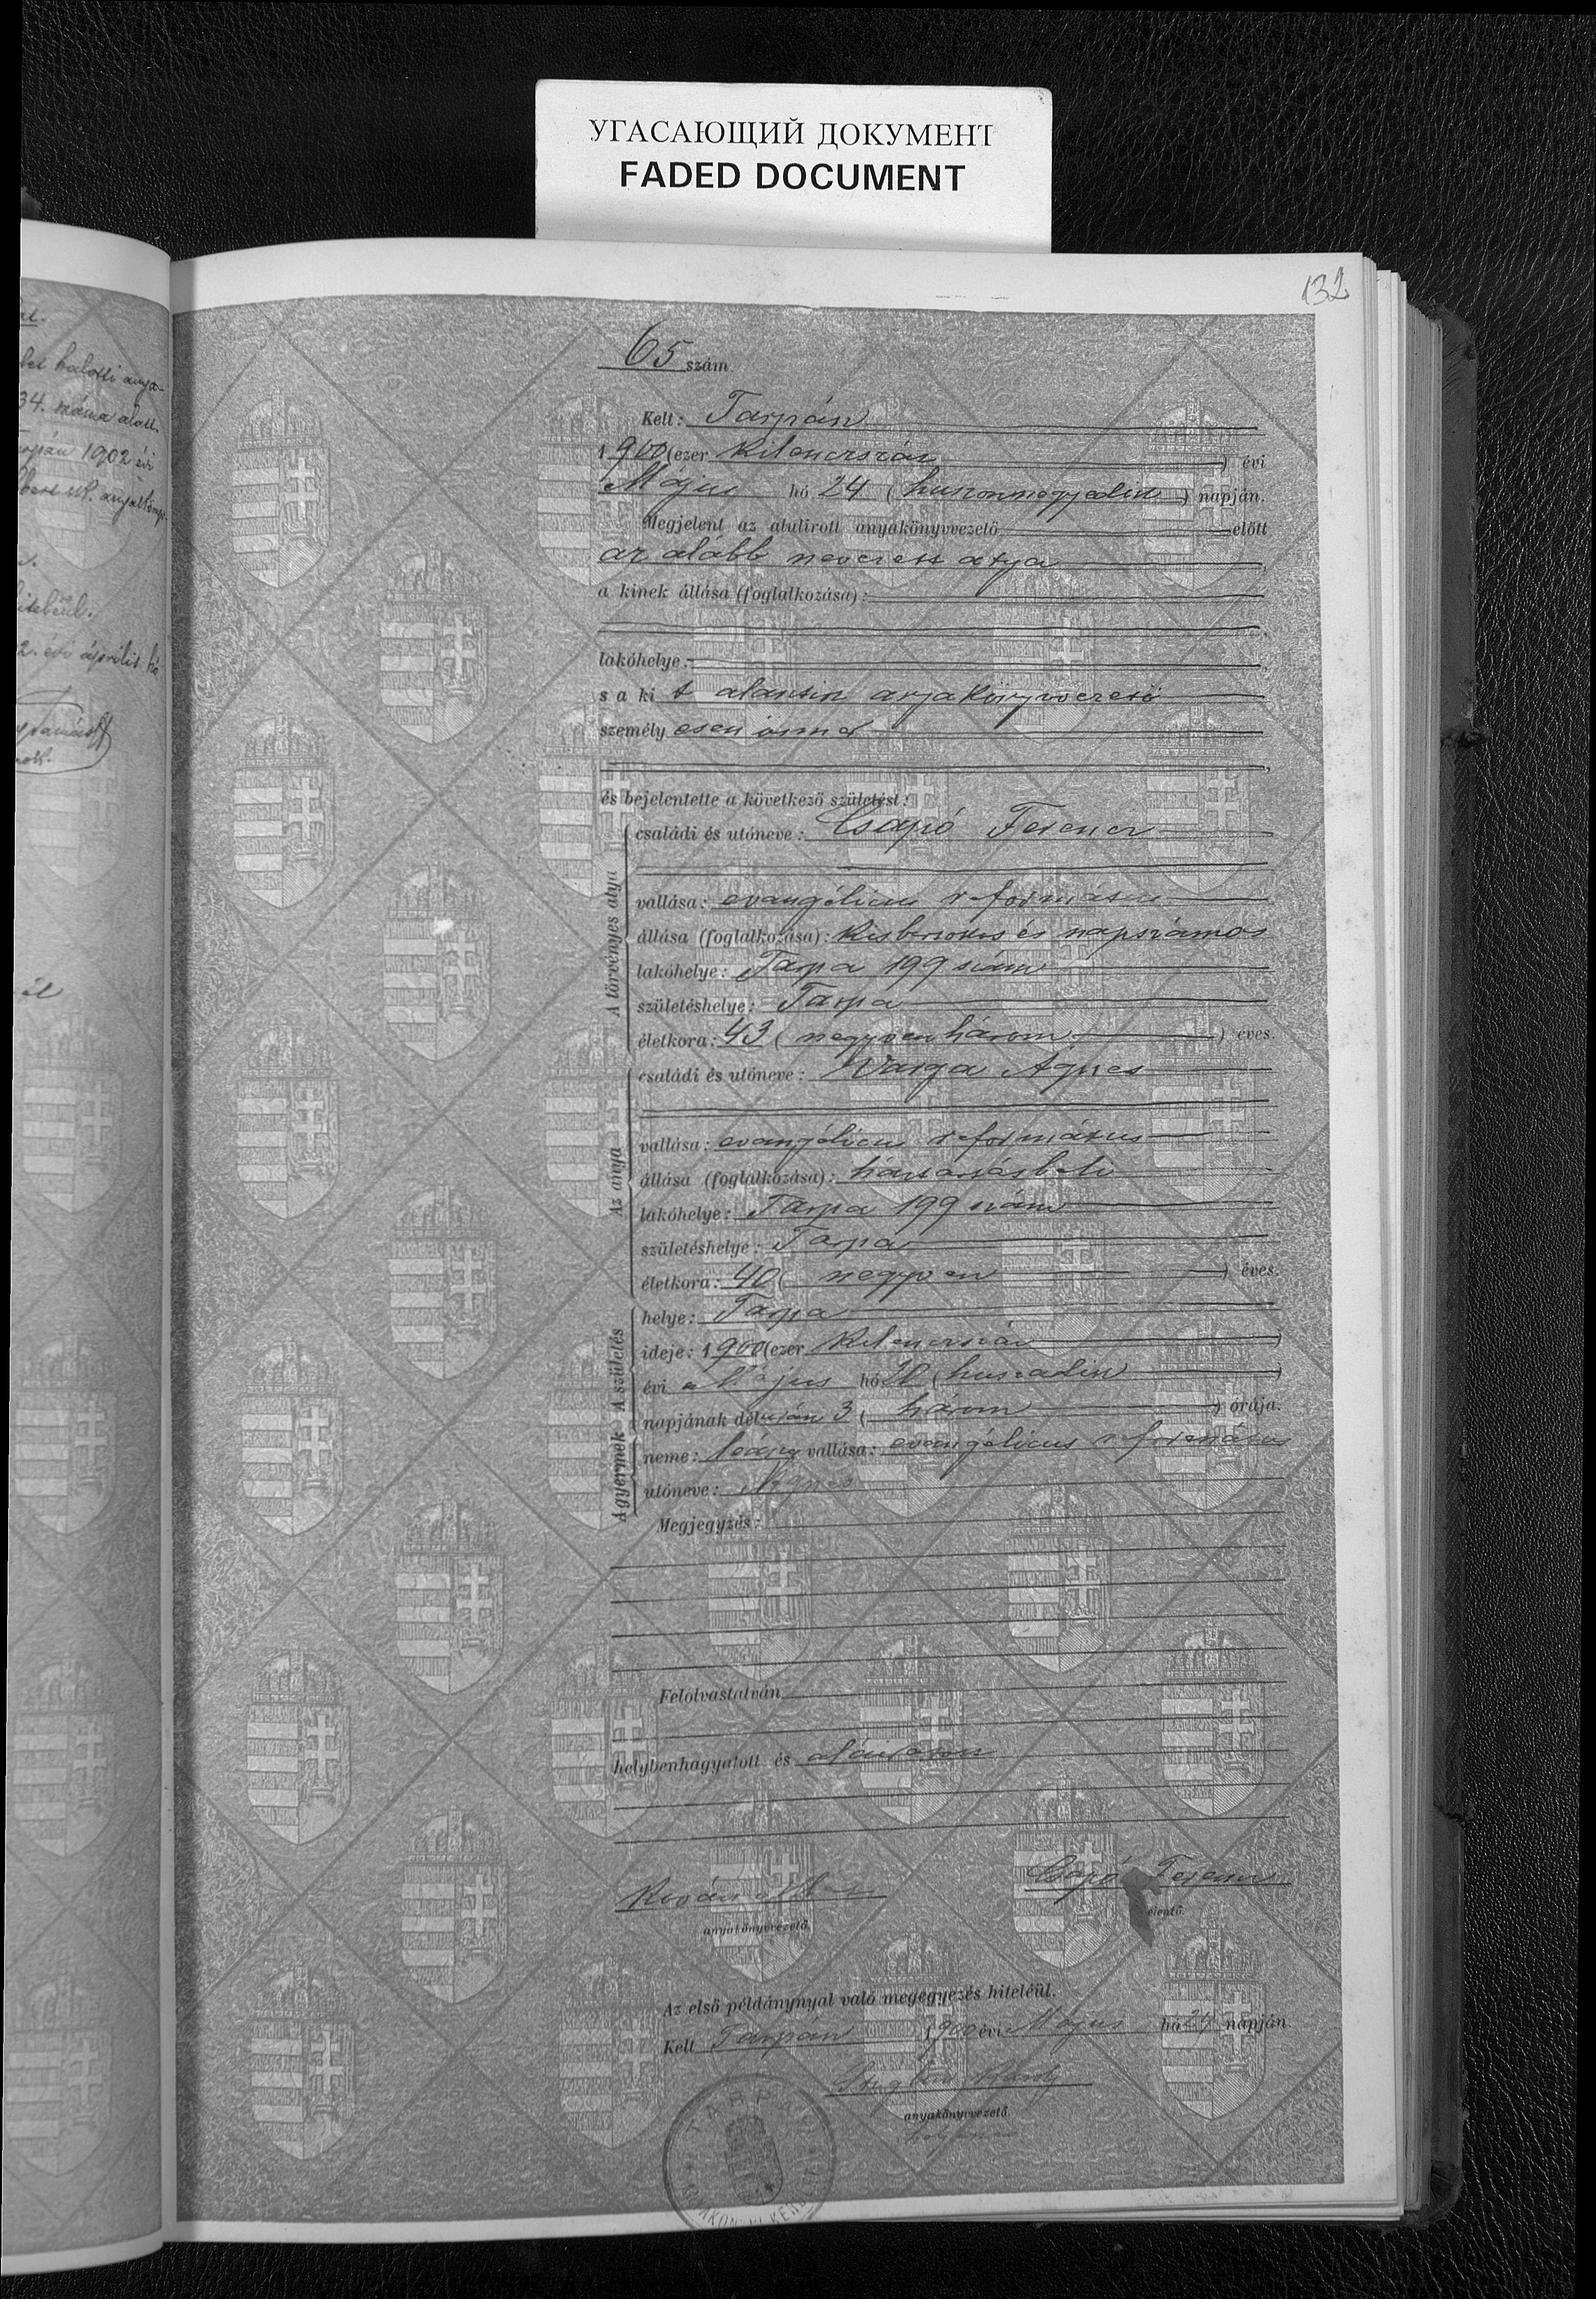 УГАСАЮЩИЙ ДОКУМЕНТ
FADED DOCUMENT
132
halotti anya-
34. száma alatt.
1902 évi
hiteléül.
2. évi április hó
65 szám
Kelt: Tarpán
1900 (ezer kilenczszáz) évi
Május hó 24 (huszonnegyedik) napján.
Megjelent az alulirott anyakönyvvezető előtt
az alább nevezett atya
a kinek állása (foglalkozása):
lakóhelye:
s a ki t alantirt anyakönyvvezető
személyesen ismer
és bejelentette a következő születést:
A törvényes atya
családi és utóneve: Csapó Ferencz
vallása: evangélicus református
állása (foglalkozása): kisbirtokos és napszámos
lakóhelye: Tarpa 199 szám
születéshelye: Tarpa
életkora: 43 (negyvenhárom) éves.
Az anya
családi és utóneve: Varga Ágnes
vallása: evangélicus református
állása (foglalkozása): háztartásbeli
lakóhelye: Tarpa 199 szám
születéshelye: Tarpa
életkora: 40 (negyven) éves.
A születés
helye: Tarpa
ideje: 1900 (ezer kilenczszáz)
évi Május hó 20 (huszadik)
napjának délután 3 (három) órája.
A gyermek
neme: leány vallása: evangélicus református
utóneve: Ágnes
Megjegyzés:
Felolvastatván
helybenhagyatott és aláiratott
Csapó Ferencz
anyakönyvvezető
jelentő.
Az első példánynyal való megegyezés hiteléül.
Kelt Tarpán 1900 évi Május hó 24 napján
Károly
anyakönyvvezető
TARPA